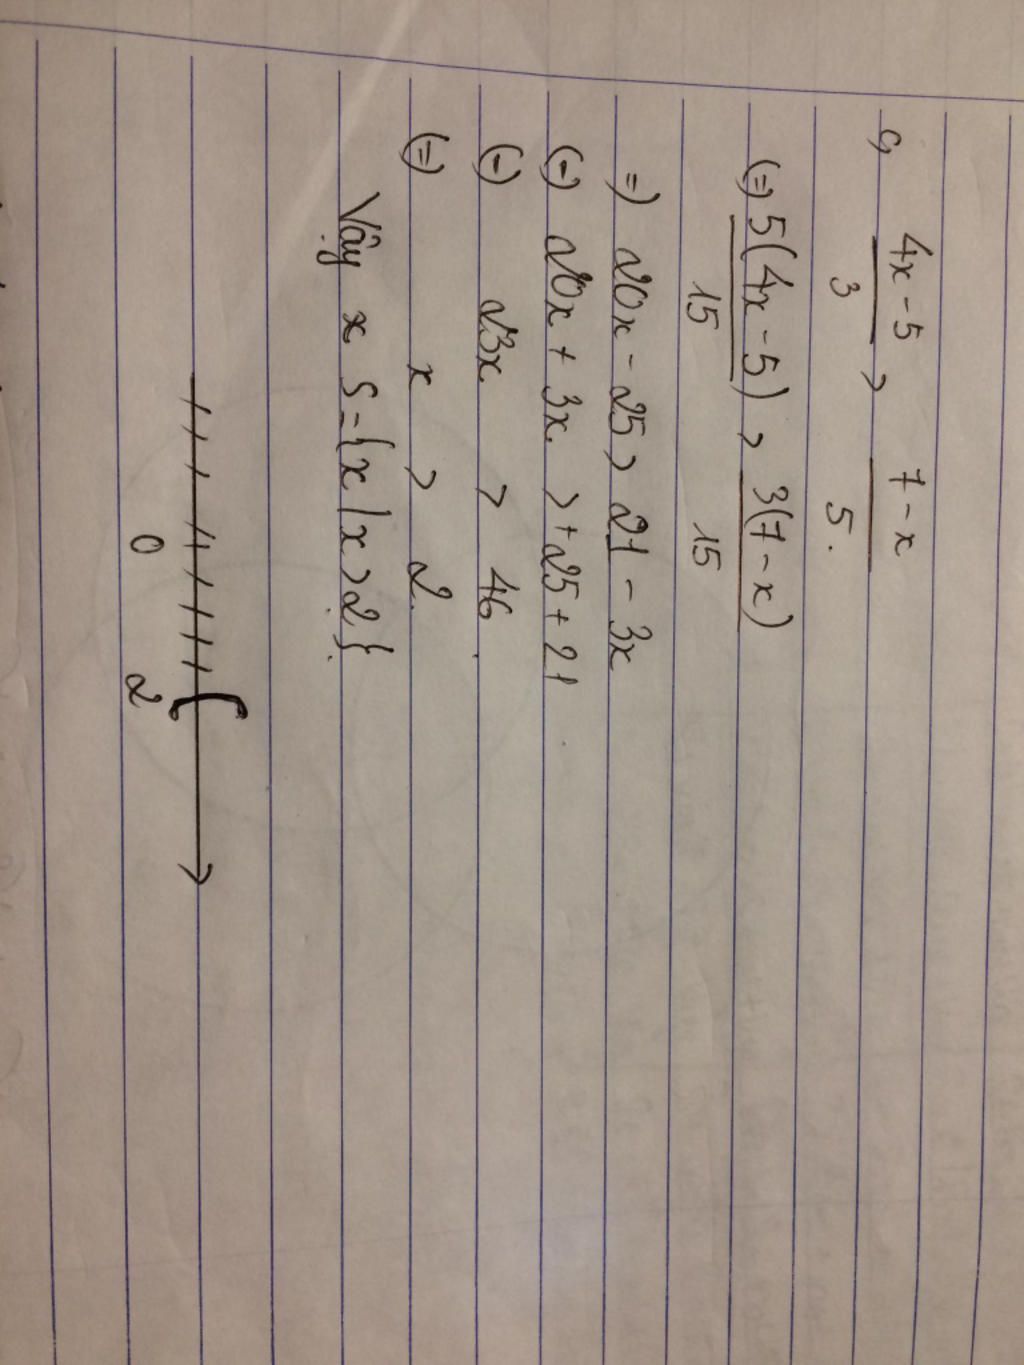 c, 4x - 5 / 3 > 7 - x / 5.
(=) 5(4x - 5) / 15 > 3(7 - x) / 15
=) 20x - 25 > 21 - 3x
(=) 20x + 3x. > + 25 + 21
(=) 23x > 46
(=) x > 2.
Vậy x S = {x | x > 2}.
0 2